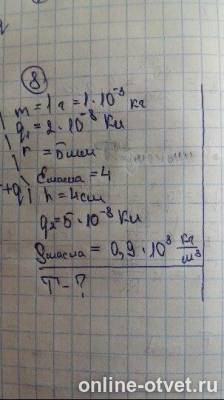 8
m = 1 г = 1 · 10⁻³ кг
q₁ = 2 · 10⁻⁸ Кл
r = 5 мм
ε масла = 4
+q
h = 4 см
q₂ = 5 · 10⁻⁸ Кл
ρ масла = 0,9 · 10³ кг/м³
T - ?
online-otvet.ru